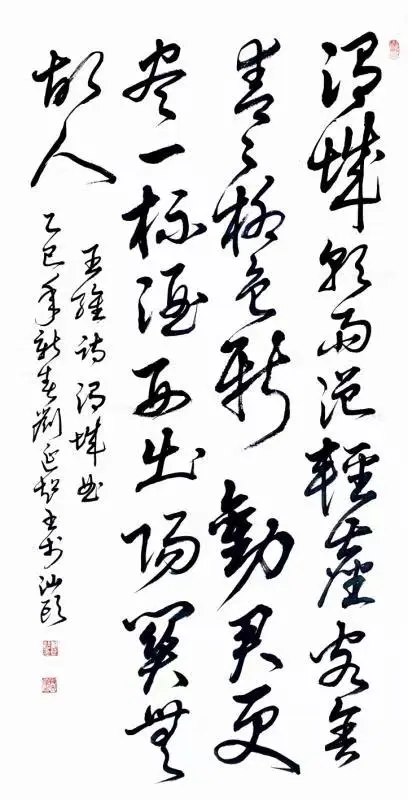 渭城朝雨浥輕塵客舍
青々柳色新勸君更
盡一杯酒西出陽關無
故人
王維詩渭城曲
乙巳年新春劉延書於汕頭